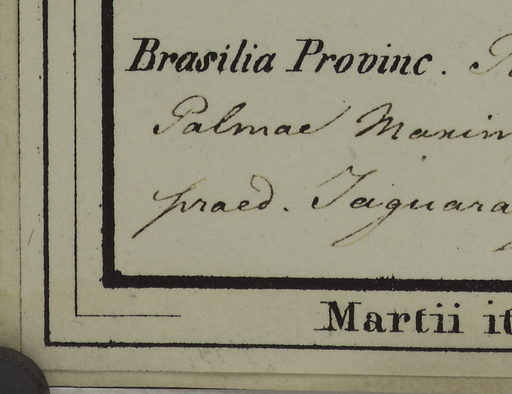 Brasilia Provinc.
Palmae Maxim
praed. Jaguara
Martii it